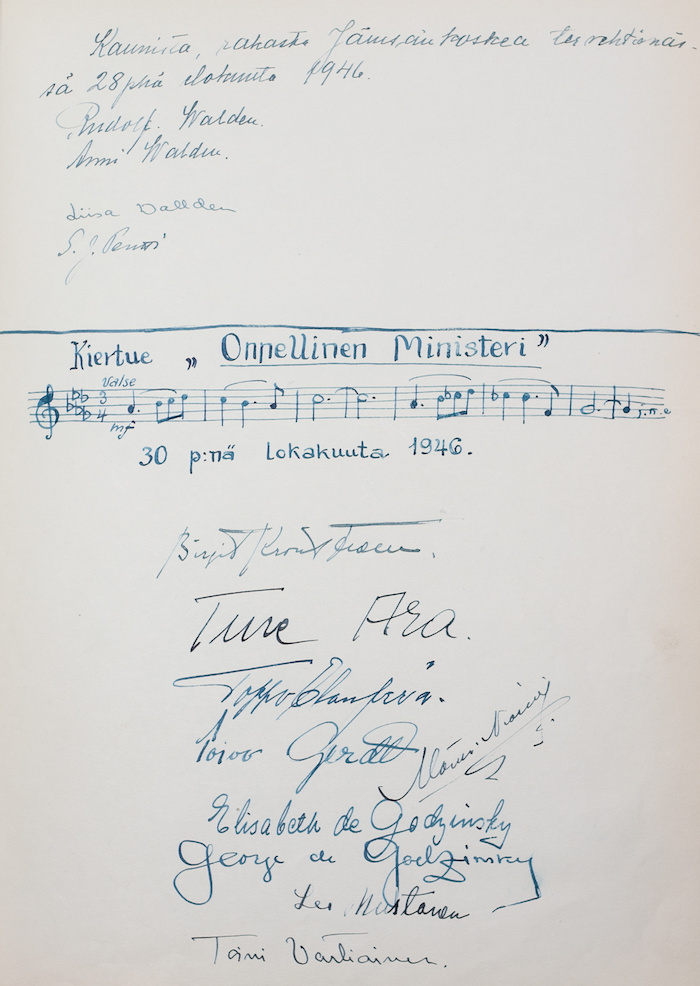 Kaunista, rakasta Jämsänkoskea tervehtimäs-
sä 28 pnä elokuuta 1946.
Rudolf. Walden.
Anni Walden.
Liisa Wallden
Kiertue „ Onnellinen Ministeri”
Valse
3
4
mf
j.n.e
30 p:nä Lokakuuta 1946.
Birgit Kronström.
Ture Ara.
Toppo Elonperä.
Toivo Gerdt
Elisabeth de Godzinsky
George de Godzinsky
Leo Mustonen
Toini Vartiainen.